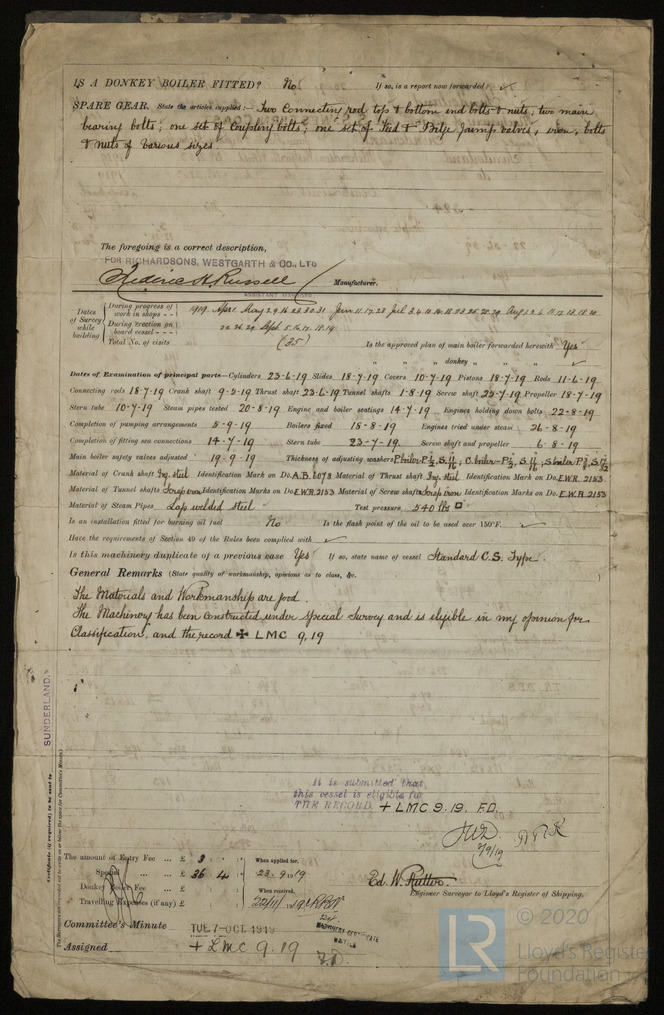 IS A DONKEY BOILER FITTED? No If so, is a report now forwarded ✓
SPARE GEAR. State the articles supplied:— Two Connecting rod top & bottom end bolts & nuts; two main
bearing bolts; one set of Coupling bolts; one set of Feed & Bilge pump valves; iron, bolts
& nuts of various sizes
The foregoing is a correct description,
FOR RICHARDSONS, WESTGARTH & CO., LTD
Manufacturer.
Dates of Survey while building
During progress of work in shops - - 1919. May
During erection on board vessel - - - Sept. 5. 16. 17. 18. 19
Total No. of visits (35) Is the approved plan of main boiler forwarded herewith Yes
" " " donkey " " ✓
Dates of Examination of principal parts—Cylinders 23-6-19 Slides 18-7-19 Covers 10-7-19 Pistons 18-7-19 Rods 11-6-19
Connecting rods 18-7-19 Crank shaft 9-5-19 Thrust shaft 23-6-19 Tunnel shafts 1-8-19 Screw shaft Propeller 18-7-19
Stern tube 10-7-19 Steam pipes tested 20-8-19 Engine and boiler seatings 14-7-19 Engines holding down bolts 22-8-19
Completion of pumping arrangements 5-9-19 Boilers fixed 18-8-19 Engines tried under steam 26-8-19
Completion of fitting sea connections 14-7-19 Stern tube 23-7-19 Screw shaft and propeller 6-8-19
Main boiler safety valves adjusted 19-9-19 Thickness of adjusting washers
Material of Crank shaft Ing. steel Identification Mark on Do. A.B. Material of Thrust shaft Ing. steel Identification Mark on Do. E.W.R. 2153
Material of Tunnel shafts Scrap iron Identification Marks on Do. E.W.R. 2153 Material of Screw shafts Scrap iron Identification Marks on Do. E.W.R. 2153
Material of Steam Pipes Lap welded steel Test pressure 540 lbs □
Is an installation fitted for burning oil fuel No Is the flash point of the oil to be used over 150°F. ✓
Have the requirements of Section 49 of the Rules been complied with ✓
Is this machinery duplicate of a previous case Yes If so, state name of vessel Standard C.S. Type.
General Remarks (State quality of workmanship, opinions as to class, &c.
The Materials and Workmanship are good.
The Machinery has been constructed under special Survey and is eligible in my opinion for
Classification, and the record ✠ LMC 9.19
SUNDERLAND.
Certificate (if required) to be sent to
It is submitted that
this vessel is eligible for
THE RECORD + LMC 9.19. F.D.
The amount of Entry Fee ... £ 3 : When applied for,
Special ... £ 36 : 4 : 23.9.1919
Donkey Boiler Fee ... £ When received,
Travelling Expenses (if any) £ 22/11/19
Ed. W. Rutter.
Engineer Surveyor to Lloyd's Register of Shipping.
Committee's Minute TUE. 7-OCT. 1919
MACHINERY CERTIFICATE
WRITTEN
Assigned + LMC 9.19
F.D.
LR © 2020
Lloyd's Register
Foundation